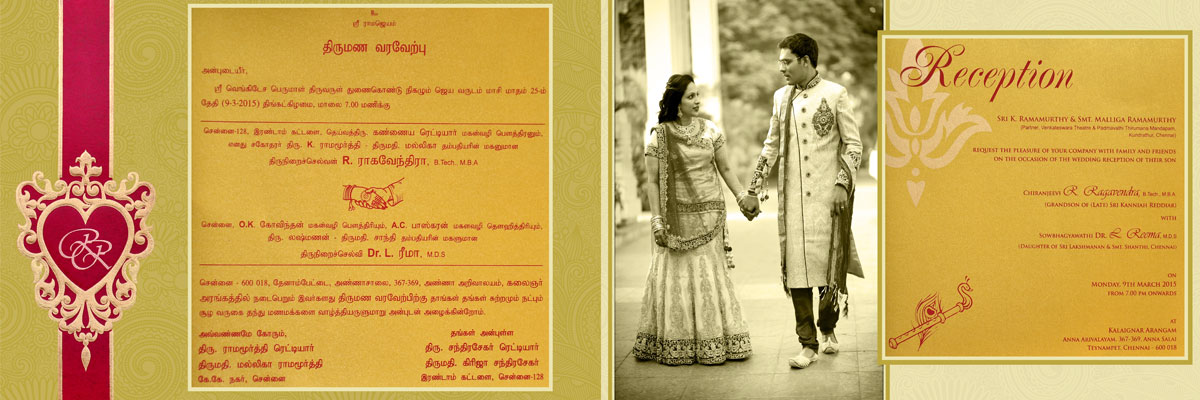 RR
உ
ஸ்ரீ ராமஜெயம்
திருமண வரவேற்பு
அன்புடையீர்,
ஸ்ரீ வெங்கிடேச பெருமாள் திருவருள் துணைகொண்டு நிகழும் ஜெய வருடம் மாசி மாதம் 25-ம்
தேதி (9-3-2015) திங்கட்கிழமை, மாலை 7.00 மணிக்கு
சென்னை-128, இரண்டாம் கட்டளை, தெய்வத்திரு. கண்ணைய ரெட்டியார் மகன்வழி பௌத்திரனும்,
எனது சகோதரர் திரு. K. ராமமூர்த்தி - திருமதி. மல்லிகா தம்பதியரின் மகனுமான
திருநிறைச்செல்வன் R. ராகவேந்திரா, B.Tech., M.B.A
சென்னை, O.K. கோவிந்தன் மகன்வழி பௌத்திரியும், A.C. பாஸ்கரன் மகள்வழி தௌஹித்திரியும்,
திரு. லஷ்மணன் - திருமதி. சாந்தி தம்பதியரின் மகளுமான
திருநிறைச்செல்வி Dr. L. ரீமா, M.D.S
சென்னை - 600 018, தேனாம்பேட்டை, அண்ணாசாலை, 367-369, அண்ணா அறிவாலயம், கலைஞர்
அரங்கத்தில் நடைபெறும் இவர்களது திருமண வரவேற்பிற்கு தாங்கள் தங்கள் சுற்றமும் நட்பும்
சூழ வருகை தந்து மணமக்களை வாழ்த்தியருளுமாறு அன்புடன் அழைக்கின்றோம்.
அவ்வண்ணமே கோரும்,
திரு. ராமமூர்த்தி ரெட்டியார்
திருமதி. மல்லிகா ராமமூர்த்தி
கே.கே. நகர், சென்னை
தங்கள் அன்புள்ள
திரு. சந்திரசேகர் ரெட்டியார்
திருமதி. கிரிஜா சந்திரசேகர்
இரண்டாம் கட்டளை, சென்னை-128
Reception
Sri K. Ramamurthy & Smt. Malliga Ramamurthy
(Partner, Venkateswara Theatre & Padmavathi Thirumana Mandapam,
Kundrathur, Chennai)
request the pleasure of your company with family and friends
on the occasion of the wedding reception of their son
Chiranjeevi R. Ragavendra, B.Tech., M.B.A.
(Grandson of (Late) Sri Kanniah Reddiar)
with
Sowbhagyavathi Dr. L. Reema, M.D.S
(Daughter of Sri Lakshmanan & Sme Shanthi, Chennai)
on
Monday, 9th March 2015
from 7.00 pm onwards
at
Kalaignar Arangam
Anna Arivalayam, 367-369, Anna Salai
Teynampet, Chennai - 600 018